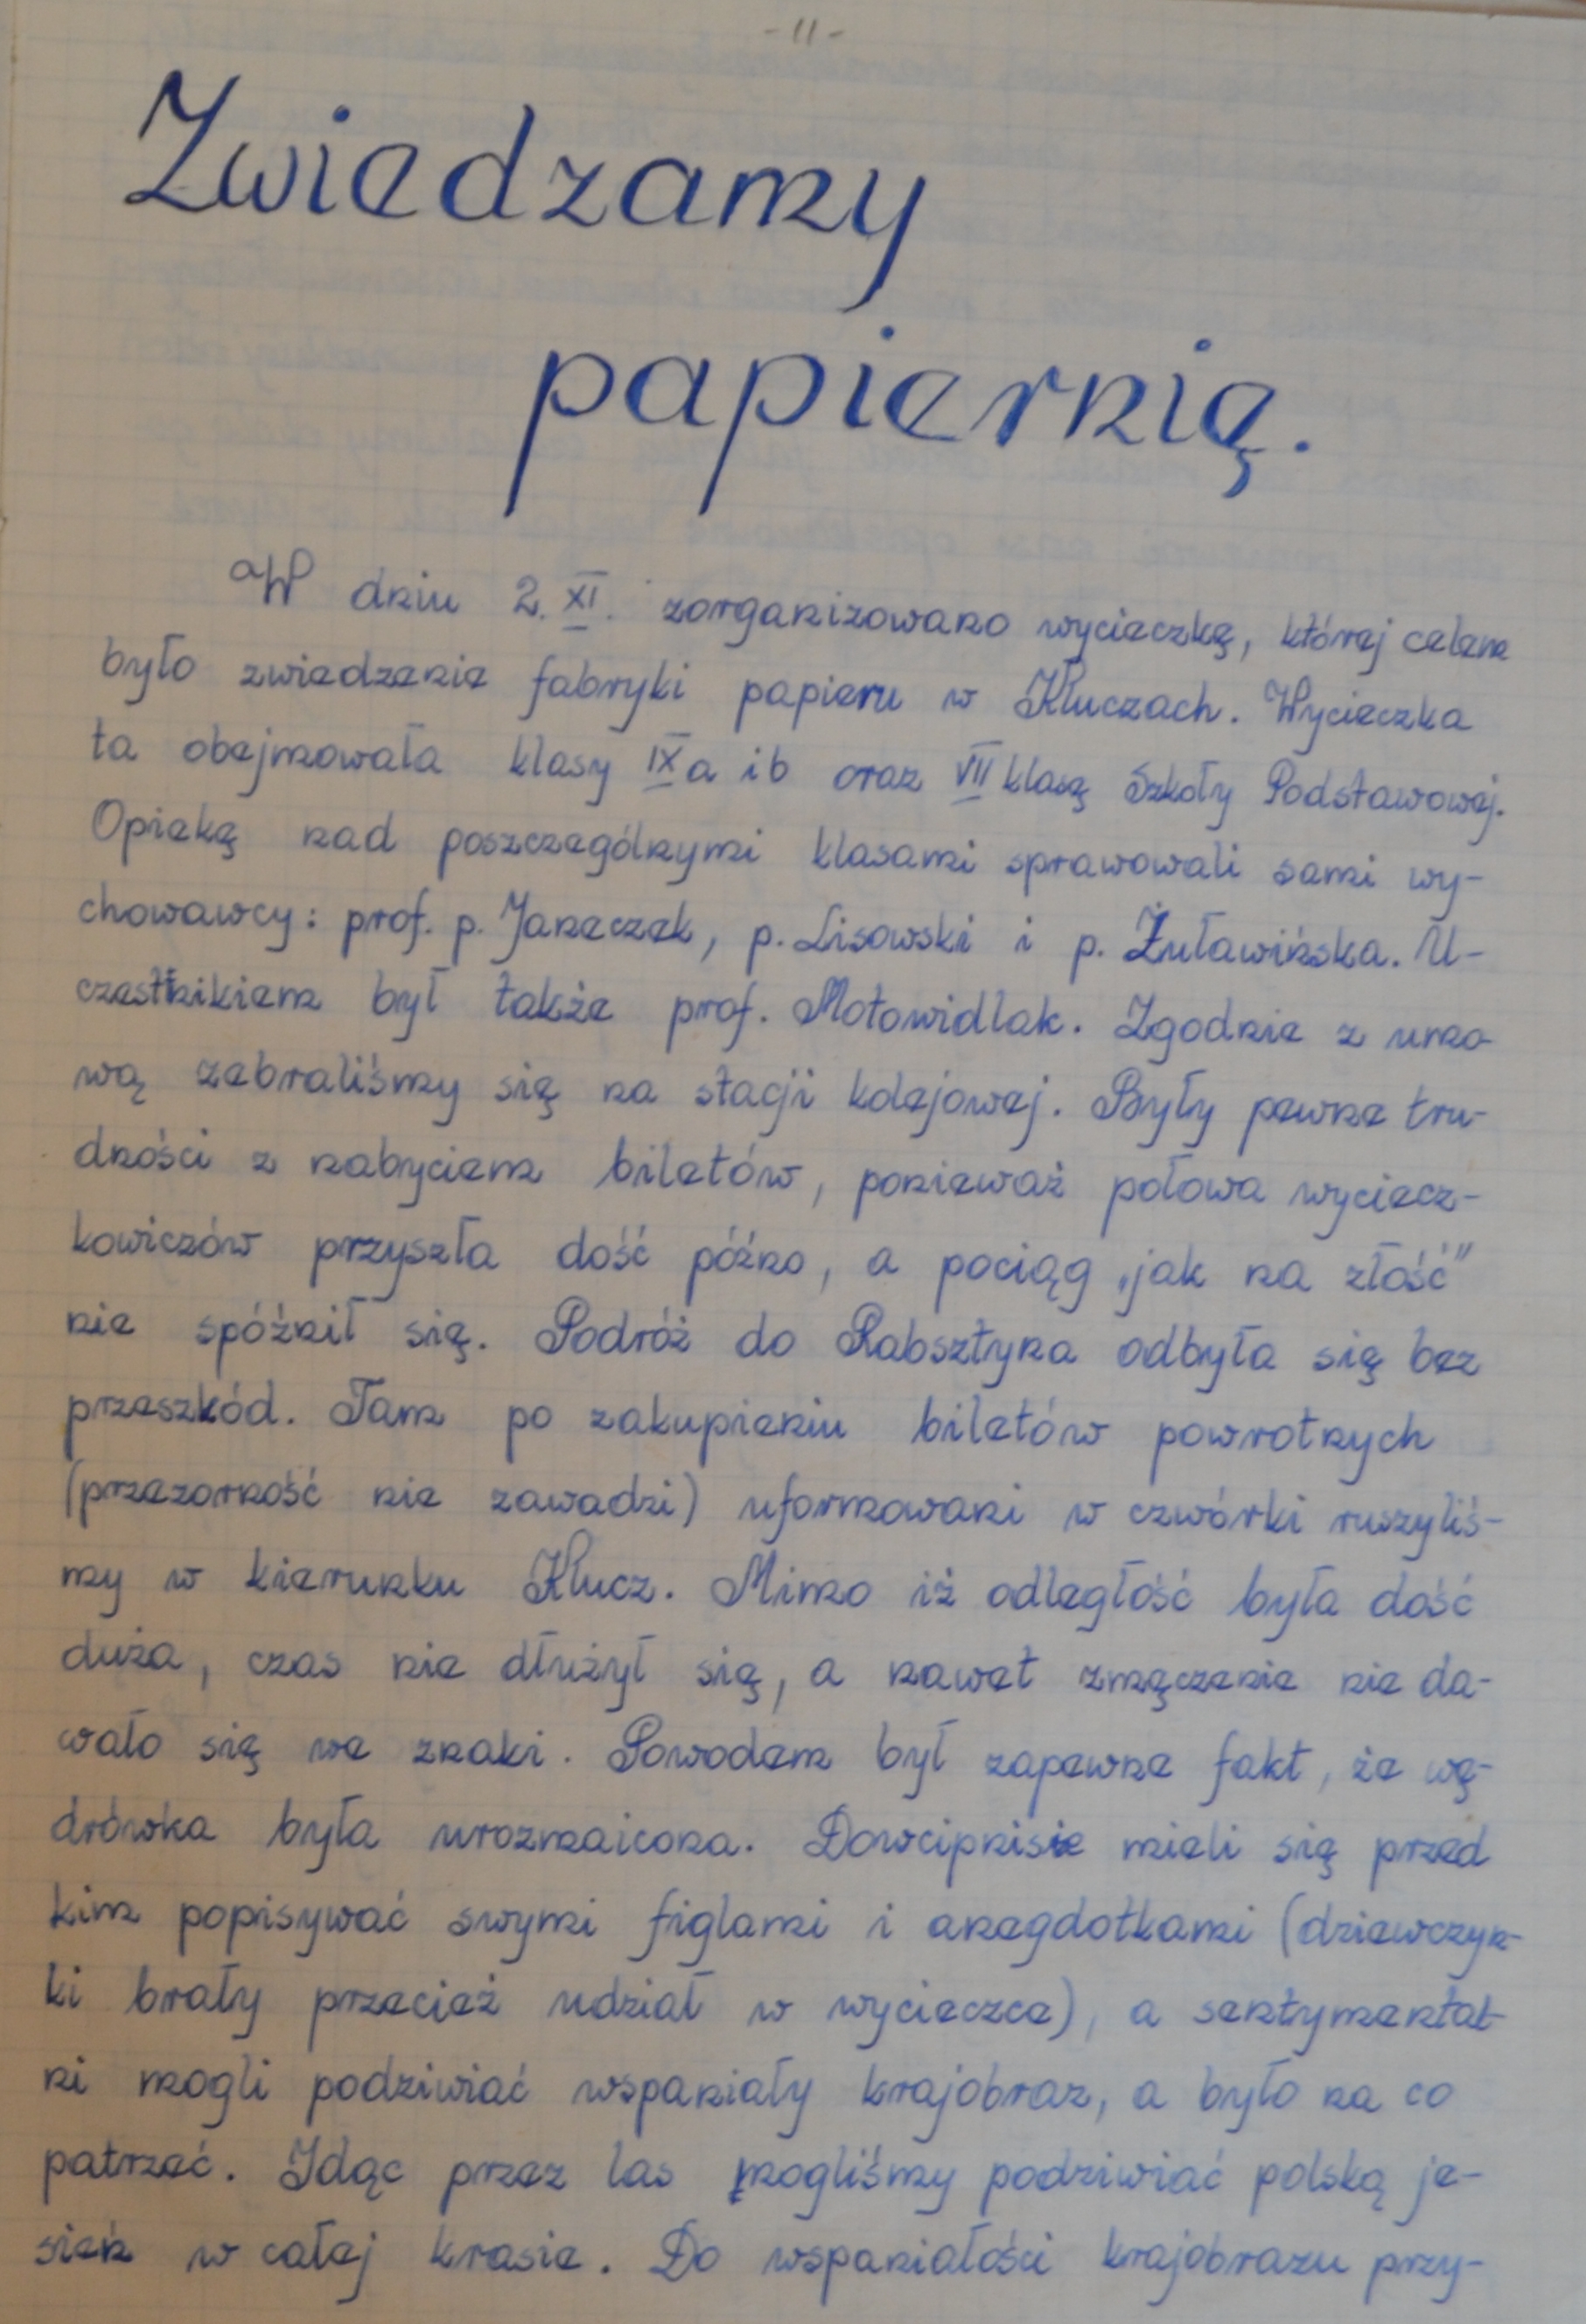 -11-
Zwiedzamy
papiernię.
W dniu 2.XI. zorganizowano wycieczkę, której celem
było zwiedzenie fabryki papieru w Kluczach. Wycieczka
ta obejmowała klasy IX a i b oraz VII klasę Szkoły Podstawowej.
Opiekę nad poszczególnymi klasami sprawowali sami wy-
chowawcy: prof. p. Janeczek, p. Lisowski i p. Żuławińska. U-
czestnikiem był także prof. Motowidlak. Zgodnie z umo-
wą zebraliśmy się na stacji kolejowej. Były pewne tru-
dności z nabyciem biletów, ponieważ połowa wyciecz-
kowiczów przyszła dość późno, a pociąg „jak na złość"
nie spóźnił się. Podróż do Rabsztyna odbyła się bez
przeszkód. Tam po zakupieniu biletów powrotnych
(przezorność nie zawadzi) uformowani w czwórki ruszyliś-
my w kierunku Klucz. Mimo iż odległość była dość
duża, czas nie dłużył się, a nawet zmęczenie nie da-
wało się we znaki. Powodem był zapewne fakt, że wę-
drówka była urozmaicona. Dowcipnisie mieli się przed
kim popisywać swymi figlami i anegdotkami (dziewczyn-
ki brały przecież udział w wycieczce), a sentymental-
ni mogli podziwiać wspaniały krajobraz, a było na co
patrzeć. Idąc przez las mogliśmy podziwiać polską je-
sień w całej krasie. Do wspaniałości krajobrazu przy-